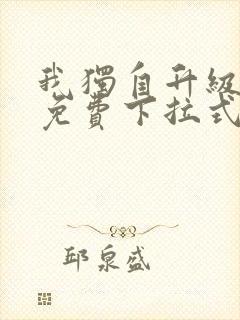 我獨自升級
免費下拉式
邱泉盛